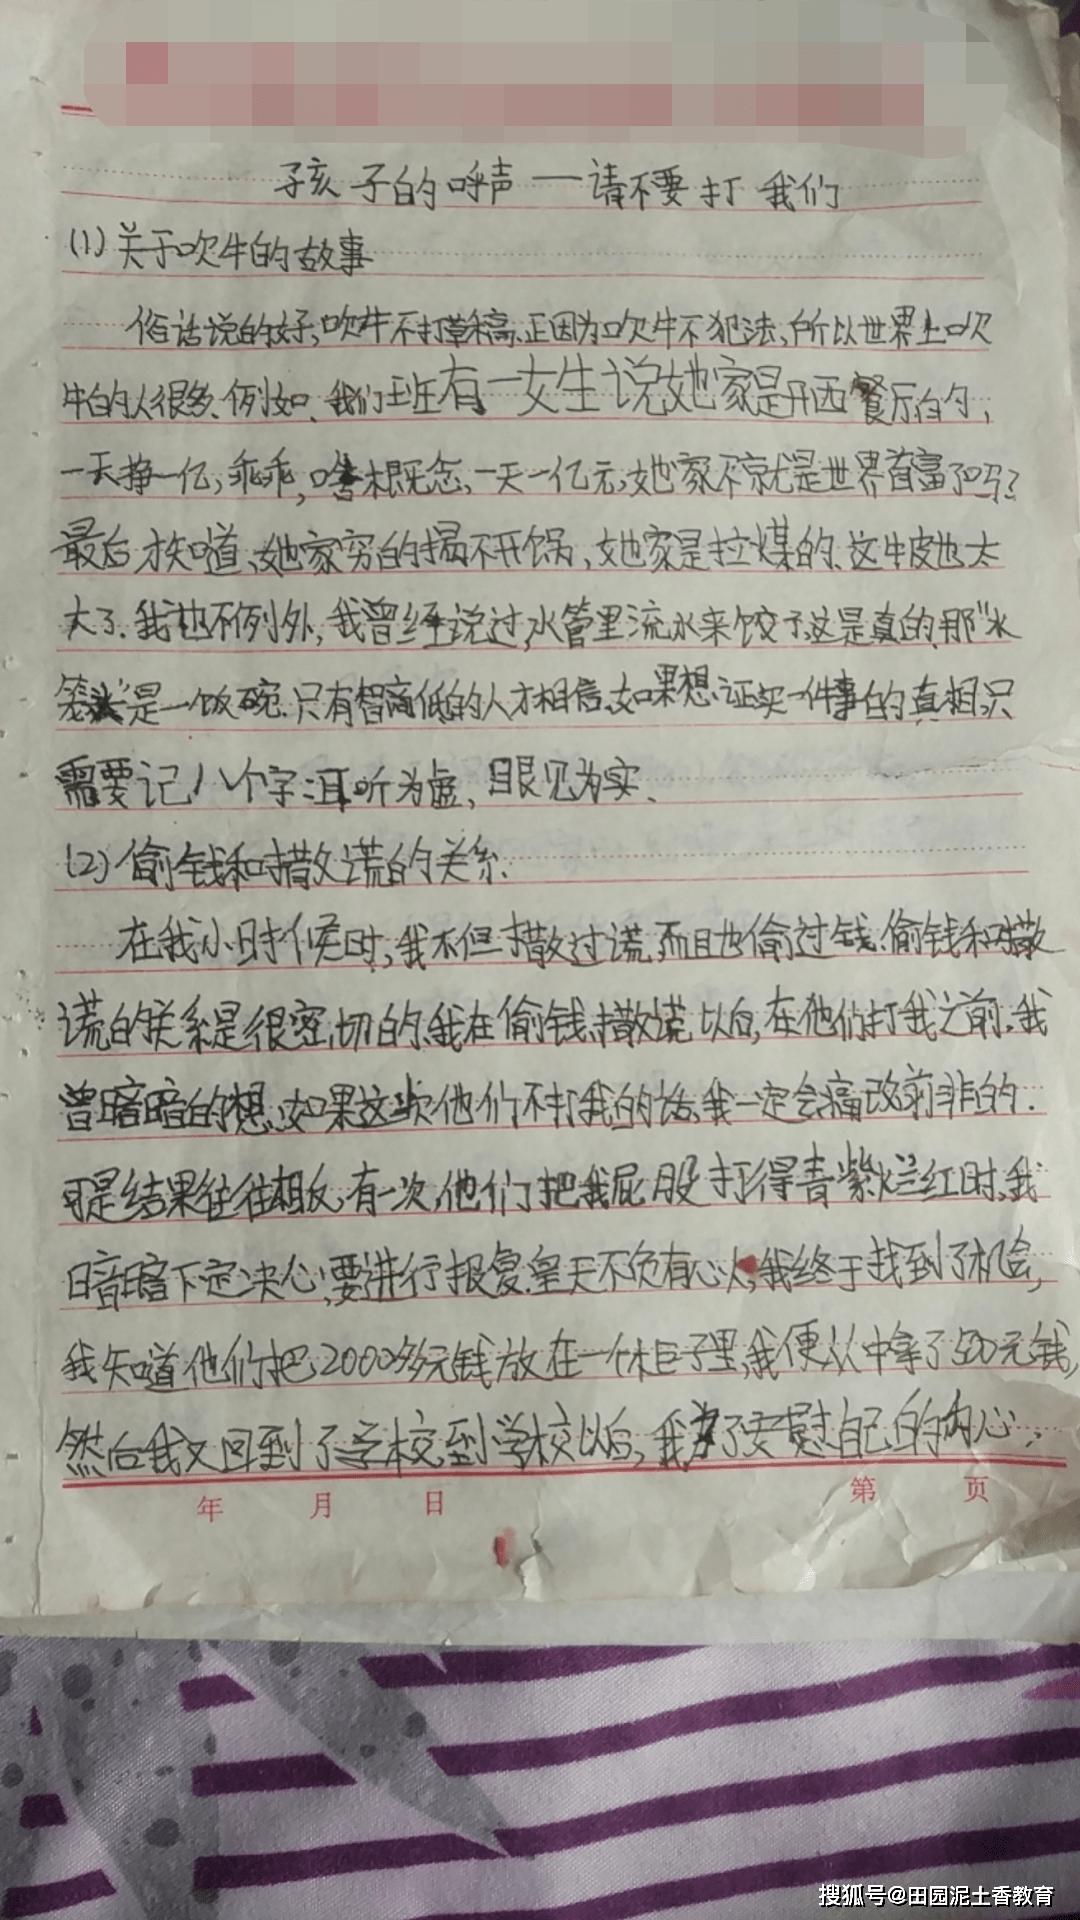 孩子的呼声——请不要打我们
(1)关于吹牛的故事
俗话说的好,吹牛不打草稿.正因为吹牛不犯法,所以世界上吹
牛的人很多.例如、我们班有一女生说她家是开西餐厅的,
一天挣一亿,乖乖,啥概念,一天一亿元,她家不就是世界首富了吗?
最后才知道、她家穷的揭不开锅、她家是拉煤的.这牛皮也太
大了.我也不例外,我曾经说过,水管里流水来饺子这是真的.那"水
笼头"是一饭碗.只有智商低的人才相信.如果想证实一件事的真相,只
需要记八个字:耳听为虚、眼见为实、
(2)偷钱和撒谎的关系.
在我小时候时,我不但撒过谎,而且也偷过钱.偷钱和撒
谎的关系是很密切的.我在偷钱撒谎以后,在他们打我之前.我
曾暗暗的想,如果这次他们不打我的话,我一定会痛改前非的.
可是结果往往相反.有一次,他们把我屁股打得青紫烂红时,我
暗暗下定决心,要进行报复.皇天不负有心人,我终于找到了机会,
我知道他们把2000多元钱放在一个柜子里,我便从中拿了500元钱,
然后我又回到了学校.到学校以后,我为了安慰自己的内心,
年 月 日 第 页
搜狐号@田园泥土香教育